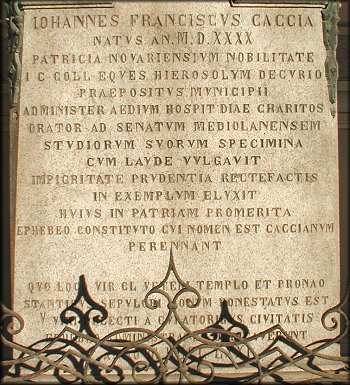 IOHANNES FRANCISCVS CACCIA
NATVS AN. M.D.XXXX
PATRICIA NOVARIENSIVM NOBILITATE
I C COLL EQVES HIEROSOLYM DECVRIO
PRAEPOSITVS MVNICIPII
ADMINISTER AEDIVM HOSPIT DIAE CHARITOS
ORATOR AD SENATVM MEDIOLANENSEM
STVDIORVM SVORVM SPECIMINA
CVM LAVDE VVLGAVIT
IMPIGRITATE PRVDENTIA RECTEFACTIS
IN EXEMPLVM ELVXIT
HVIVS IN PATRIAM PROMERITA
EPHEBEO CONSTITVTO CVI NOMEN EST CACCIANVM
PERENNANT
QVO LOCO VIR. CL VETERI TEMPLO ET PRONAO
HONESTATVS EST
CIVITATIS